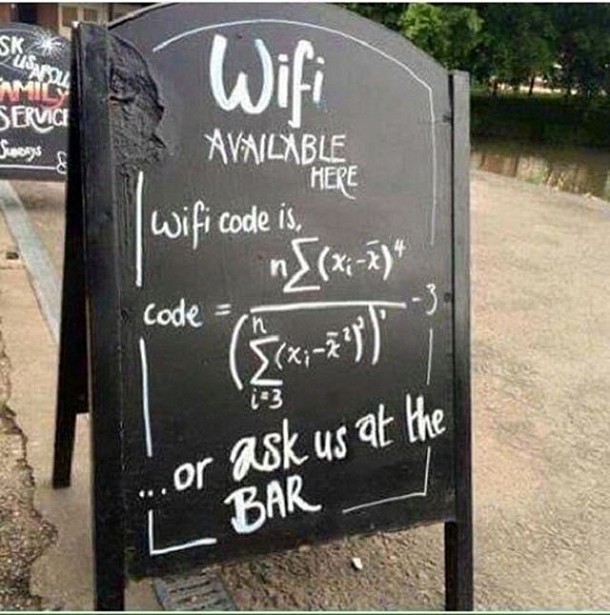 SK
US ABOU
AMILY
SERVICE
Sundays
Wifi
AVAILABLE
HERE
Wifi code is,
n∑(xᵢ-x̄)⁴
code = ——— -3
n
(∑(xᵢ-x̄²)²)
i=3
...or ask us at the
BAR